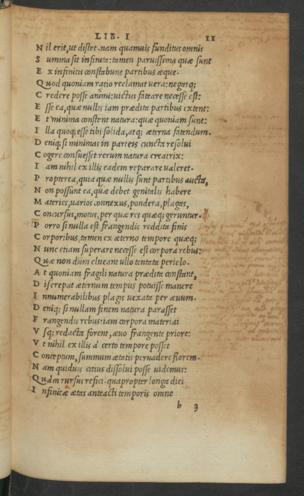 LIB. I 11
N il erit, ut distet. nam quamuis funditus omnis
S umma sit infinita: tamen paruissema quæ sunt
E x infinitis constabunt partibus æque.
Q uod quoniam ratio reclamat uera: negatq;
C redere posse animū: uictus fateare necesse est:
E sse ea, quæ nullis iam prædita partibus extent:
E t minima constent natura: quæ quoniam sunt:
I lla quoq; esse tibi solida, atq; æterna fatendum.
D eniq; si minimas in parteis cuncta resolui
C ogere consuesset rerum natura creatrix:
I am nihil ex illis eadem reparare ualeret
P ropterea, quia quæ nullis sunt partibus aucta,
N on possunt ea, quæ debet genitalis habere
M ateries, uarios connexus, pondera, plagas,
C oncursus, motus, per quæ res quæq; geruntur.
P orro si nulla est frangendis reddita finis
C orporibus, tamen ex æterno tempore quæq;
N unc etiam superare necesse est corpora rebus:
Q uæ non dum clueant ullo tentata periclo.
A t quoniam fragili natura prædita constant,
D iscrepat æternum tempus potuisse manere
I nnumerabilibus plagis uexata per æuum.
D eniq; si nullam finem natura parasset
F rangendis rebus: iam corpora materiai
V sq; redacta forent, æuo frangente priore:
V t nihil ex illis à certo tempore posset
C onceptum, summum ætatis peruadere florem.
N am quiduis citius dissolui posse uidemus:
Q uàm rursus refici. quapropter longa diei
I nfinita ætas anteacti temporis omne
b 3